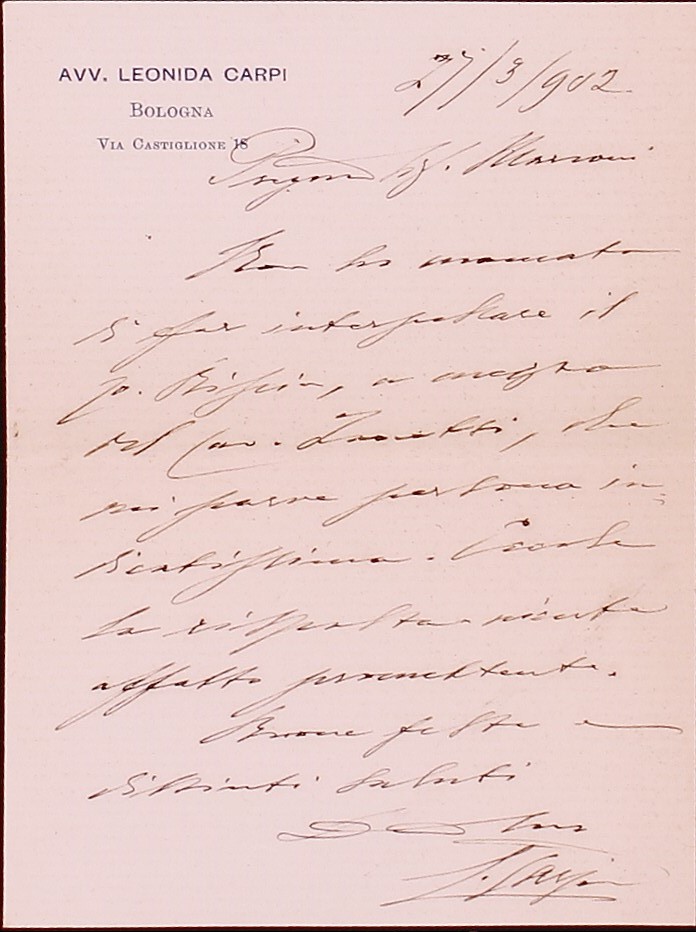 AVV. LEONIDA CARPI
BOLOGNA
VIA CASTIGLIONE 18
27/3/902.
Pregmo Sig. Marconi
Non ho mancato
di far interpellare il
p. a mezzo
del Cav. Zanetti, che
mi parve persona in-
dicatissima. Eccole
la risposta niente
affatto promettente.
Buone feste e
distinti saluti
L. Carpi